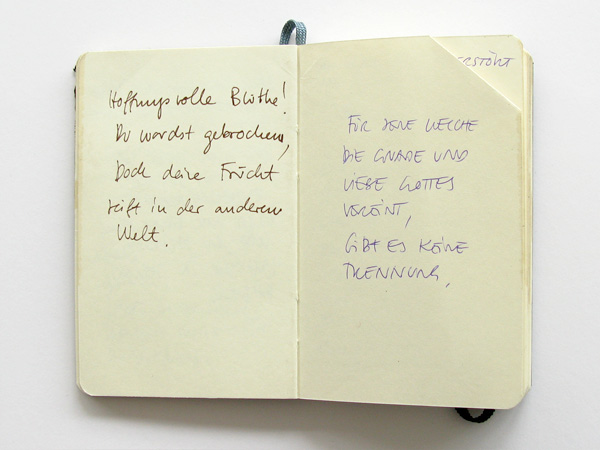 Hoffnungsvolle Blüthe!
Du wardst gebrochen,
Doch deine Frücht
reift in der anderen
Welt.
ERSTÖRT
FÜR JENE WELCHE
DIE GNADE UND
LIEBE GOTTES
VEREINT,
GIBT ES KEINE
TRENNUNG,